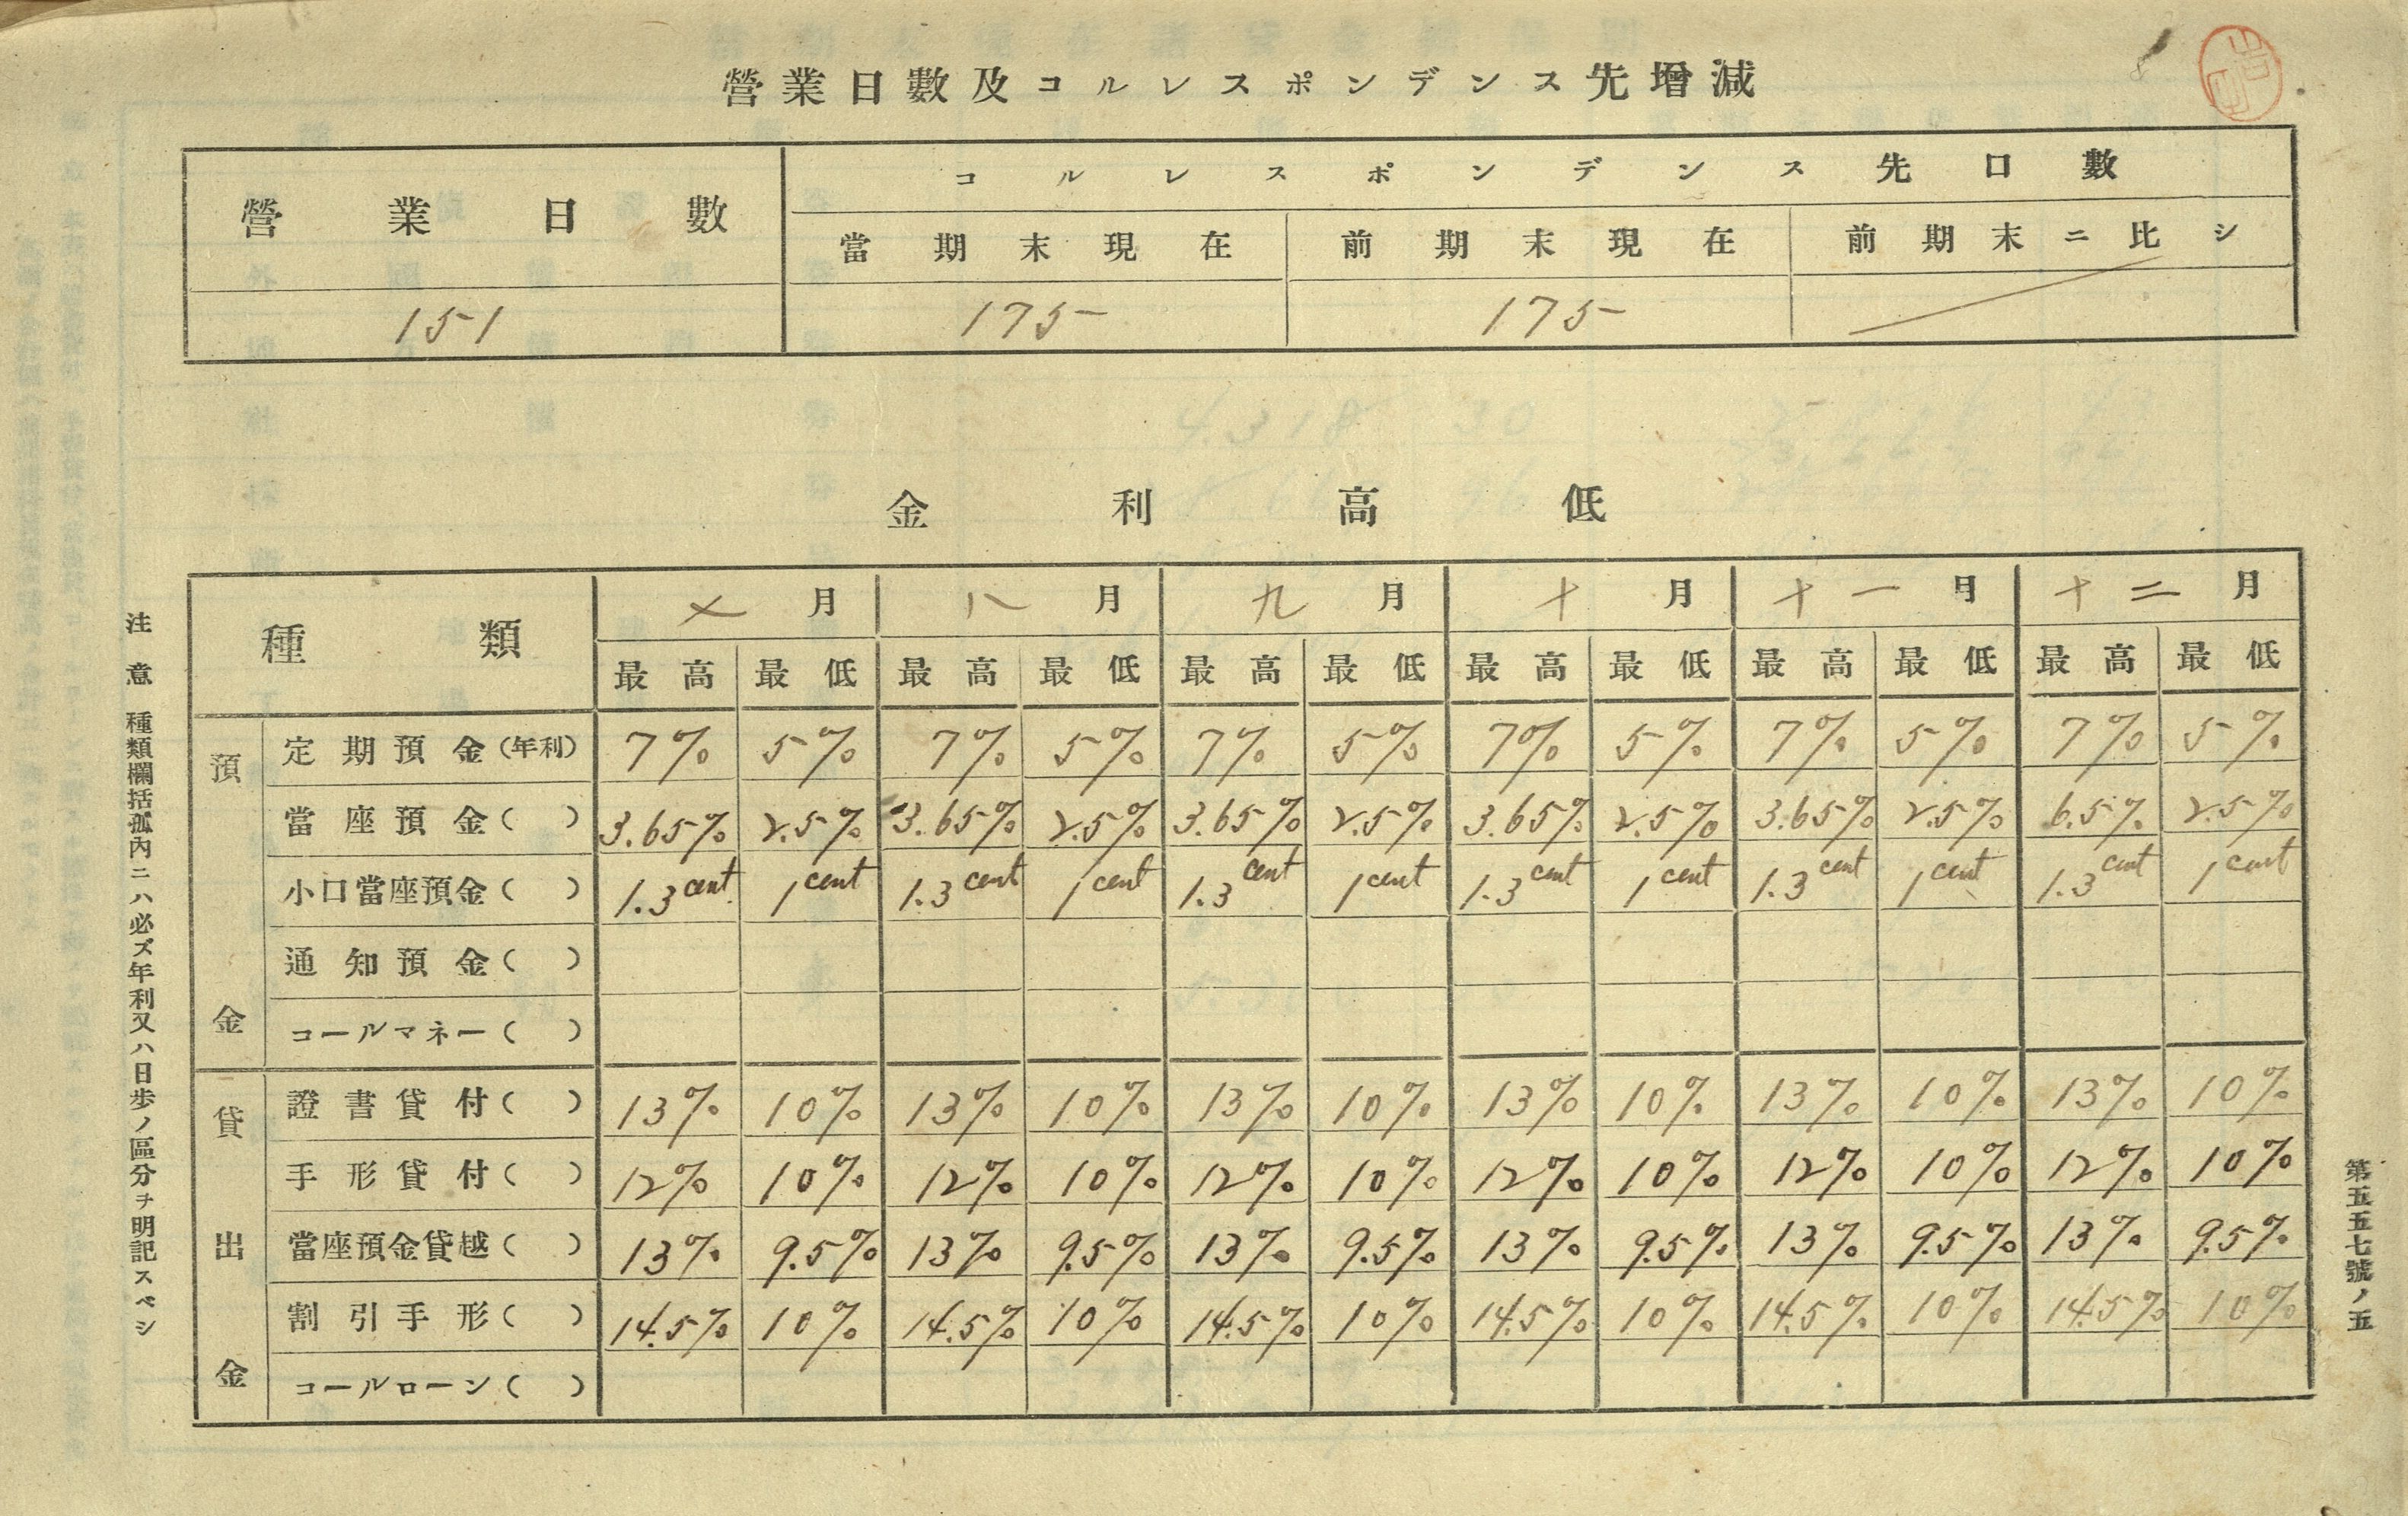 營業日數及コルレスポンデンス先增減
營業日數 コルレスポンデンス先口數
當期末現在 前期末現在 前期末ニ比シ
151 175 175
金利高低
種類 七月 八月 九月 十月 十一月 十二月
最高 最低 最高 最低 最高 最低 最高 最低 最高 最低 最高 最低
預金
定期預金(年利) 7% 5% 7% 5% 7% 5% 7% 5% 7% 5% 7% 5%
當座預金( ) 3.65% 2.5% 3.65% 2.5% 3.65% 2.5% 3.65% 2.5% 3.65% 2.5% 6.5% 2.5%
小口當座預金( ) 1.3cent 1cent 1.3cent 1cent 1.3cent 1cent 1.3cent 1cent 1.3cent 1cent 1.3cent 1cent
通知預金( )
コールマネー( )
貸出金
證書貸付( ) 13% 10% 13% 10% 13% 10% 13% 10% 13% 10% 13% 10%
手形貸付( ) 12% 10% 12% 10% 12% 10% 12% 10% 12% 10% 12% 10%
當座預金貸越( ) 13% 9.5% 13% 9.5% 13% 9.5% 13% 9.5% 13% 9.5% 13% 9.5%
割引手形( ) 14.5% 10% 14.5% 10% 14.5% 10% 14.5% 10% 14.5% 10% 14.5% 10%
コールローン( )
注意 種類欄括弧內ニハ必ズ年利又ハ日歩ノ區分ヲ明記スベシ
第五五七號ノ五